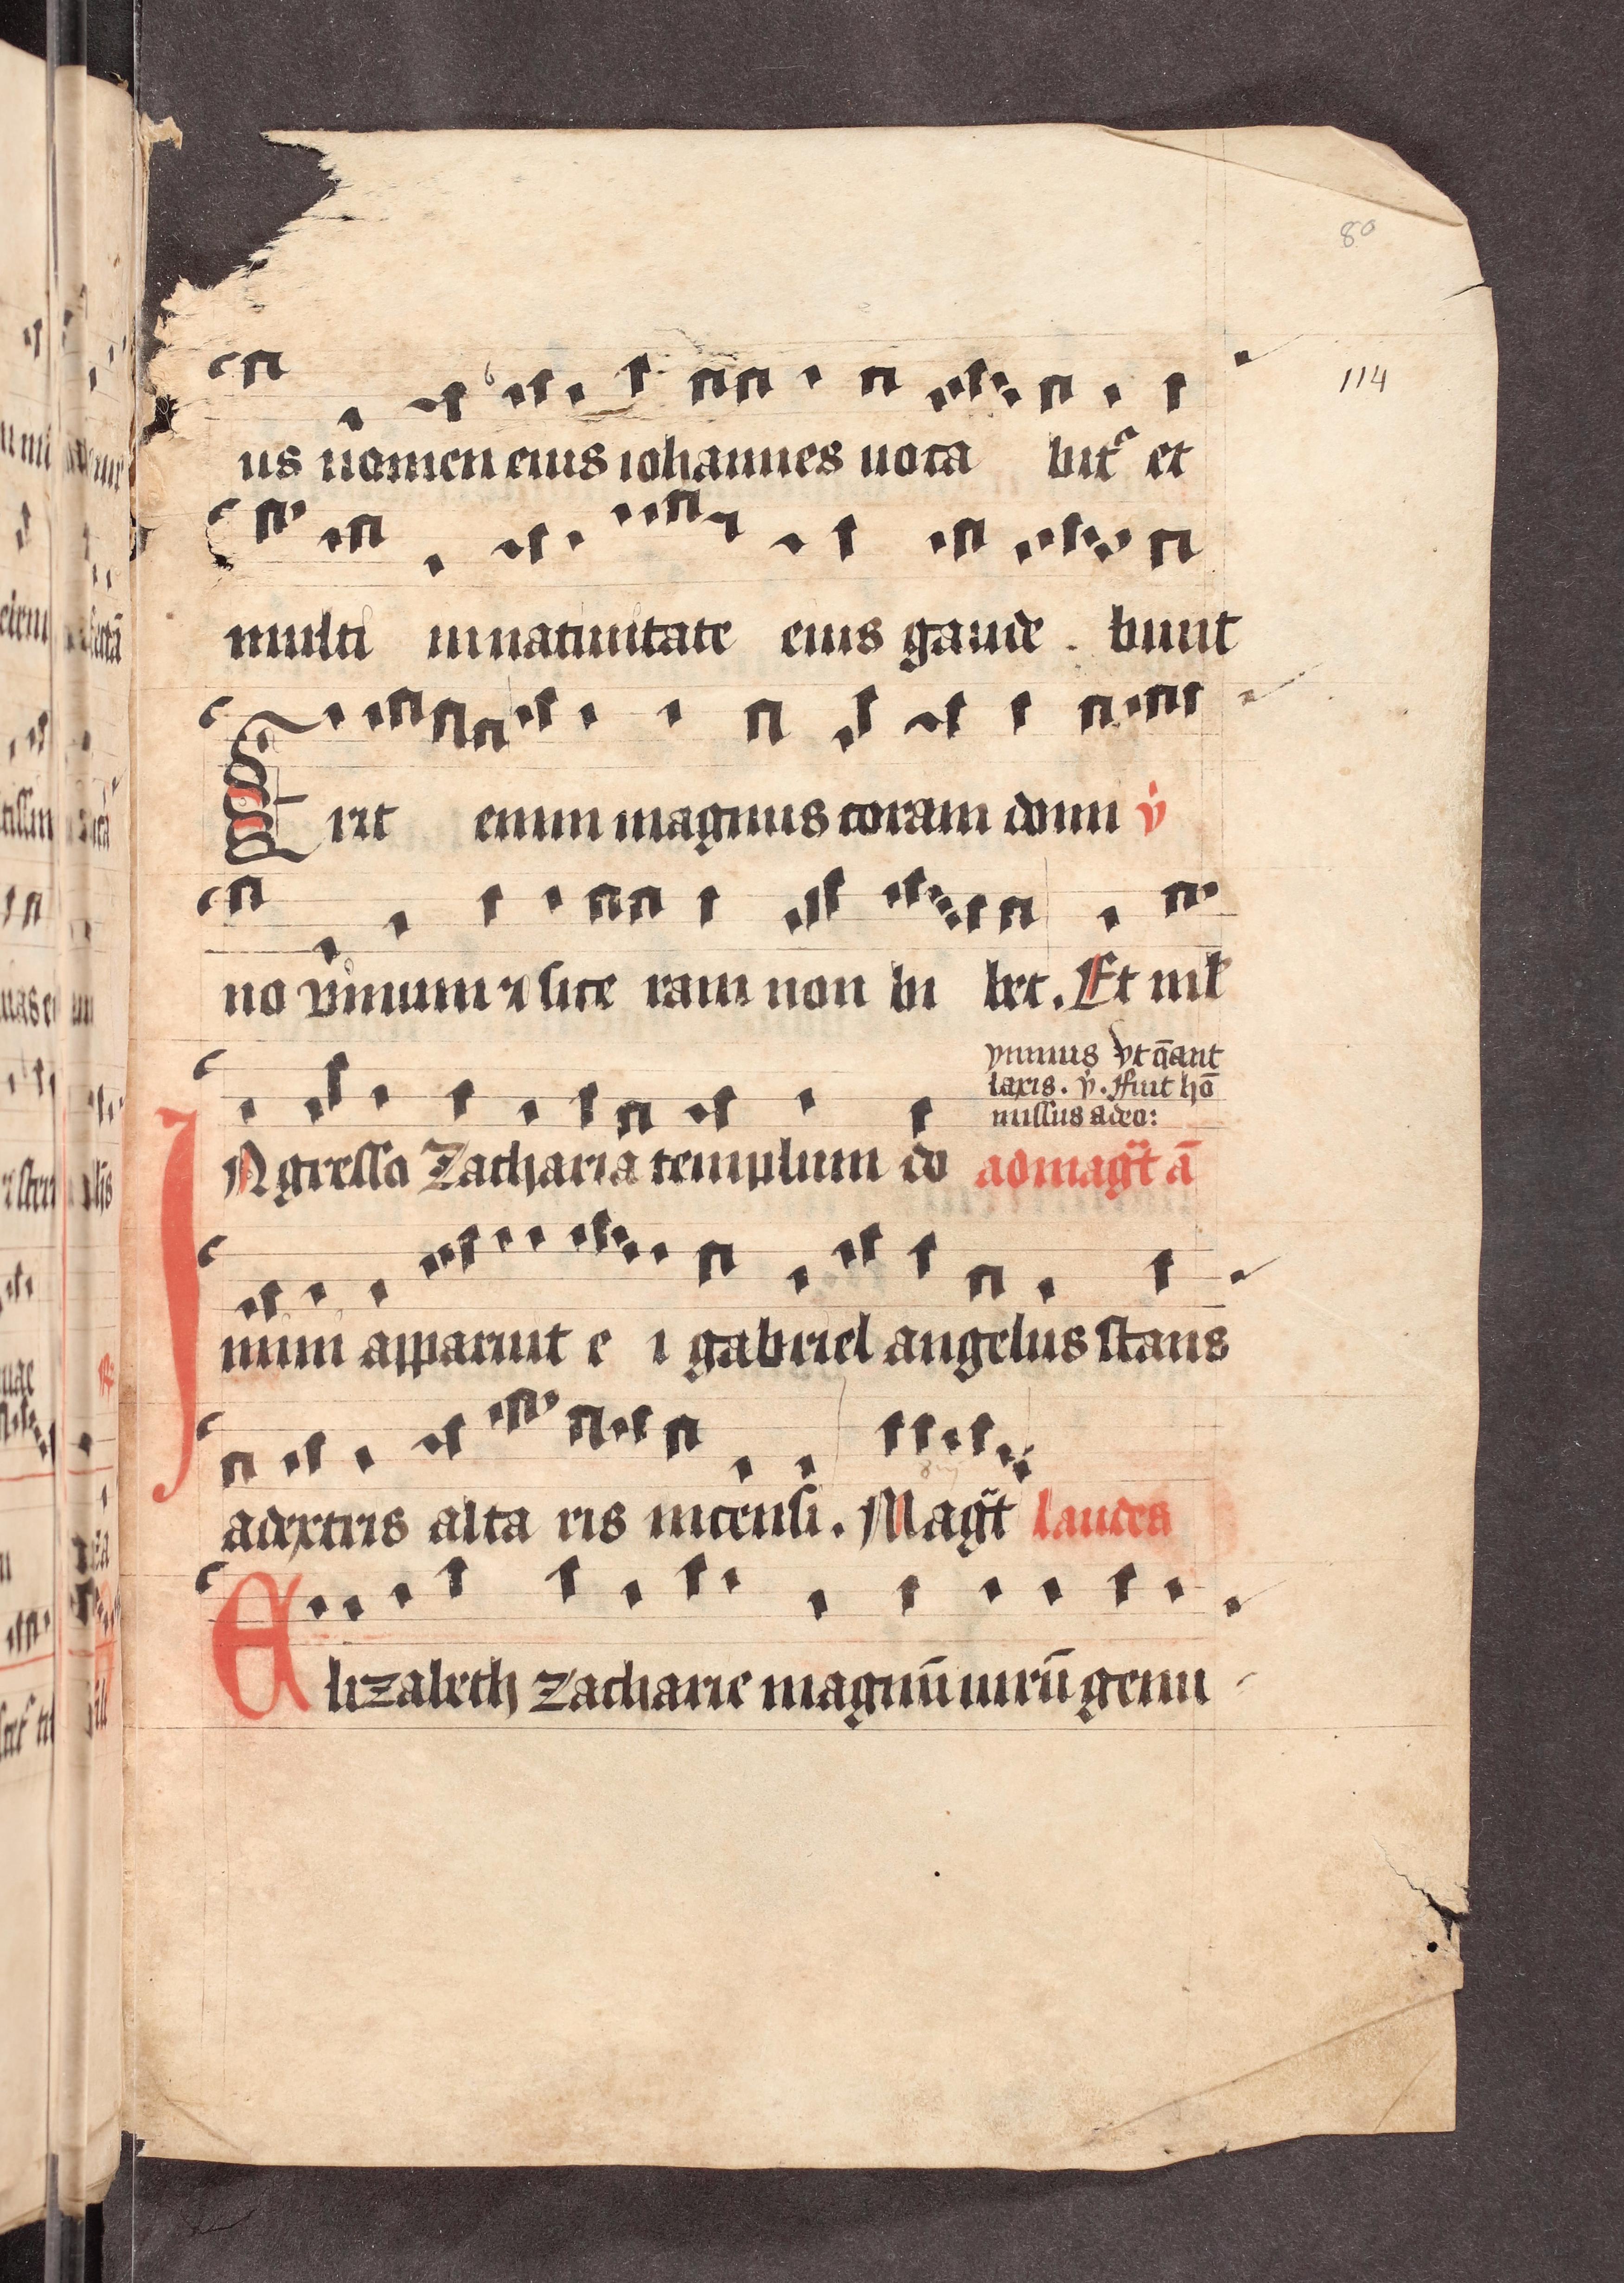 80
114
us nomen eius iohannes uoca bit᷑ et
multi innatiuitate eius gaude . bunt
Erit enim magnus coram domi v̇
no vinum ⁊ sice ram non bi bet. Et mlt
ymnus vt q̄ant
laxis. v̇. ffuit ho᷑
missus adeo:
INgresso Zacharia templum do admagt̄ a᷑
num apparuit e i gabriel angelus stans
adextris alta ris incensi. Magt̄ laudes
Elizabeth zacharie magnū uirū genu